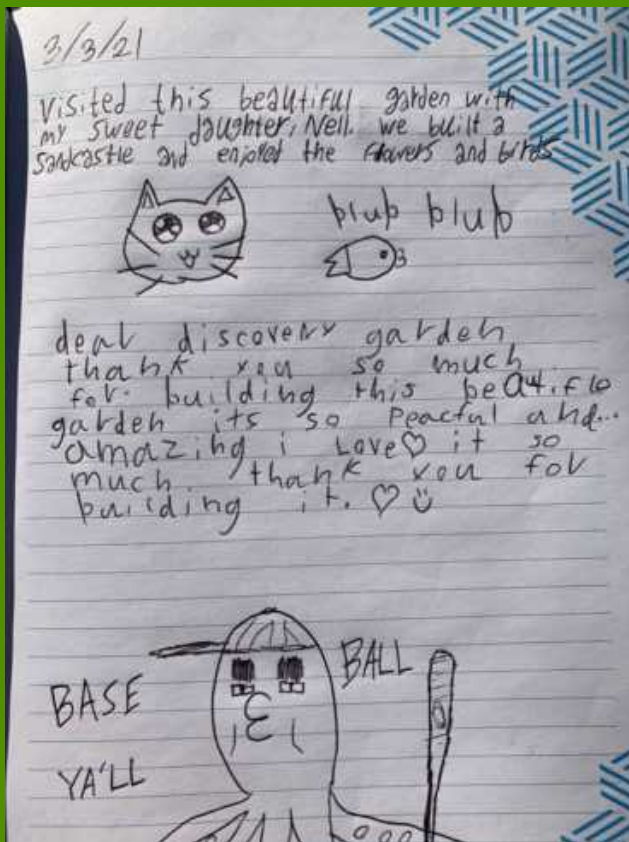 3/3/21
Visited this beautiful garden with
my sweet daughter, Nell. we built a
Sandcastle and enjoyed the flowers and birds
blub blub
dear discovery garden
thank you so much
for building this beautiflo
garden its so peacful and...
amazing i Love♡ it so
much. thank you for
building it. ♡ ☺
BASE BALL
YA'LL